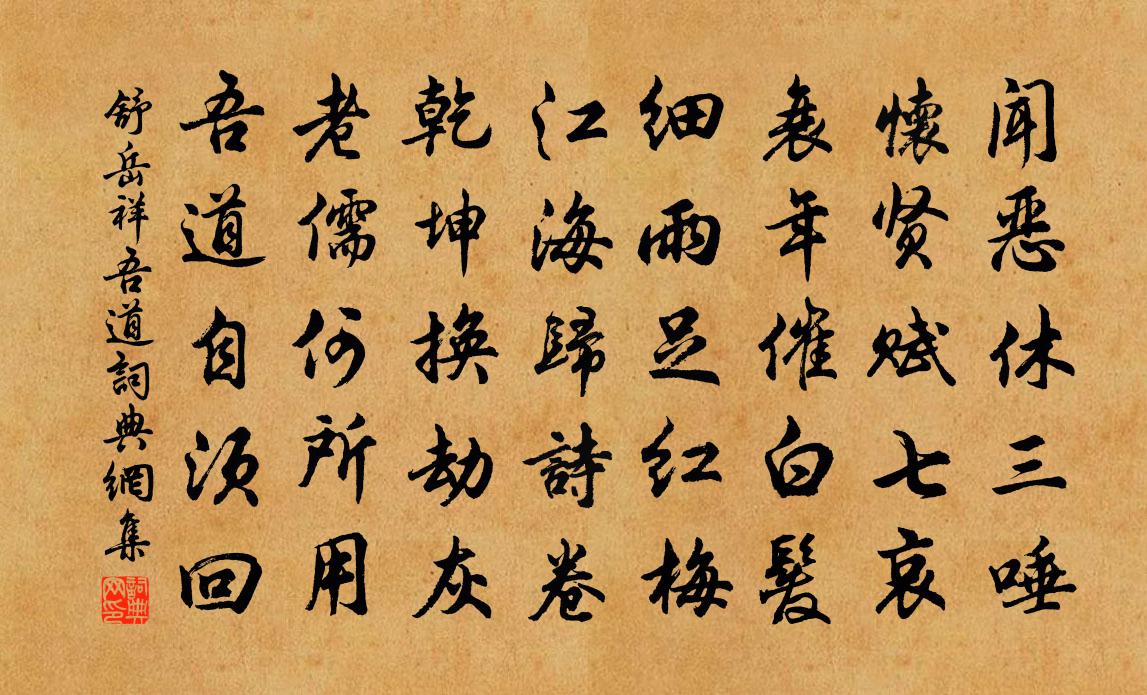 闻恶休三唾
懷贤赋七哀
衰年催白髮
细雨足红梅
江海歸詩卷
乾坤換劫灰
老儒何所用
吾道自须回
舒岳祥吾道詞典網集
詞典网印